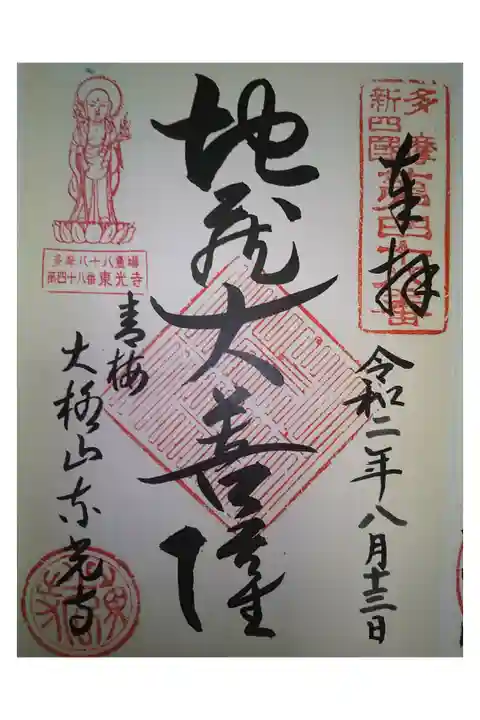 多摩
新四國
第四十八番
奉拝
令和二年八月十三日
地蔵大菩薩
多摩八十八霊場
第四十八番 東光寺
青梅
大柳山東光寺